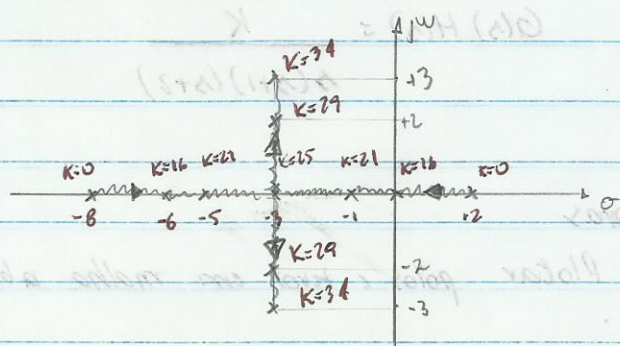 jω
K=34
+3
K=29
+2
K=0 K=16 K=21 K=25 K=21 K=16 K=0
-8 -6 -5 -3 -1 +2 σ
K=29
-2
K=34
-3